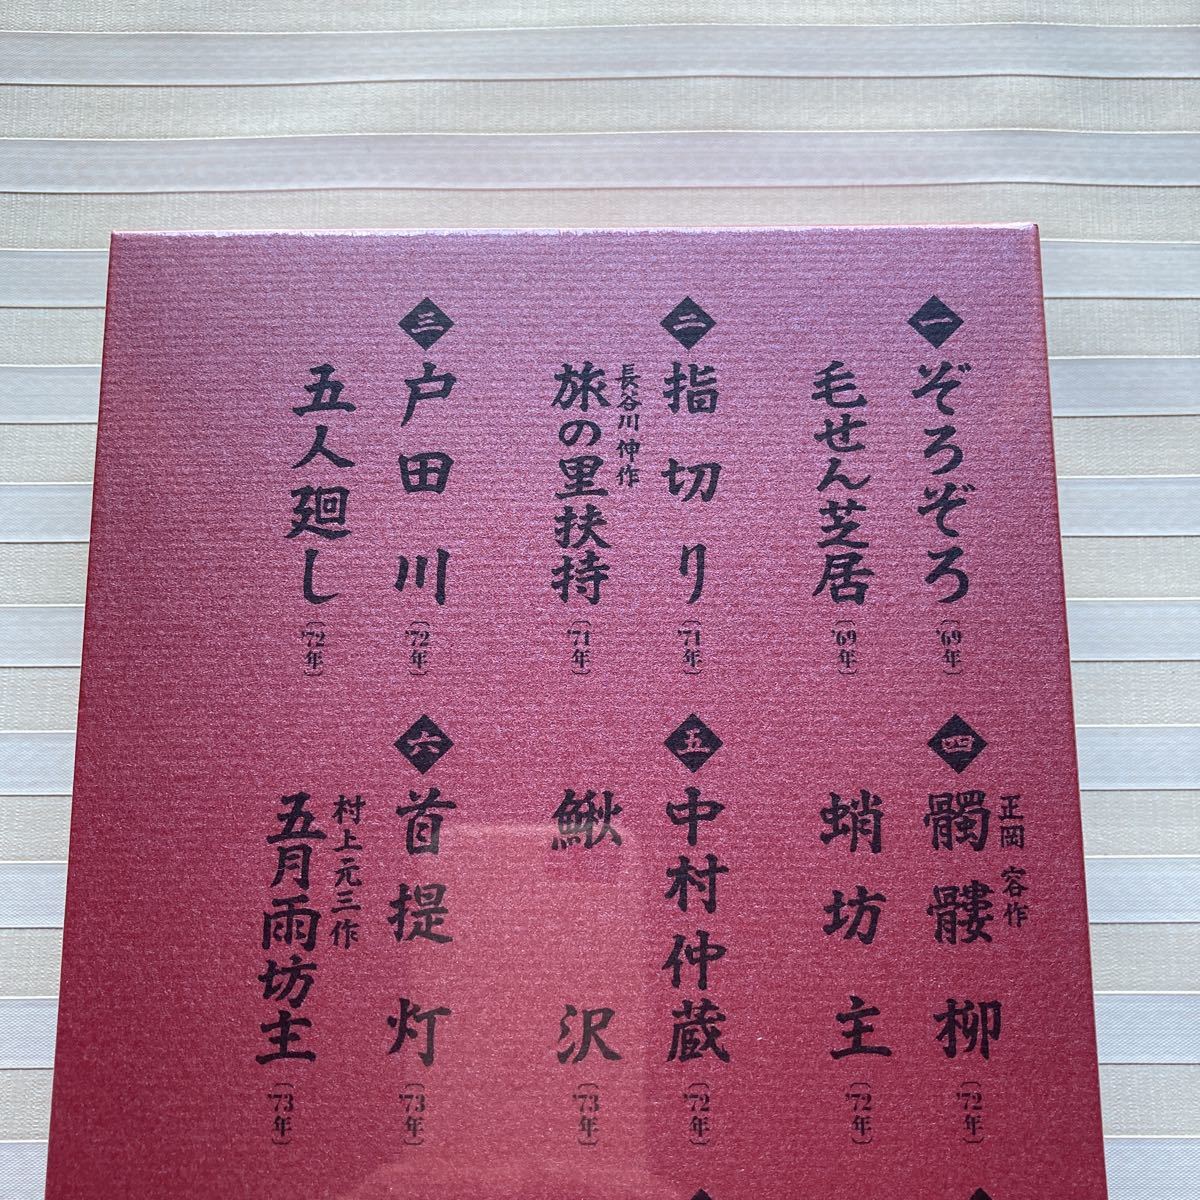 一
ぞろぞろ（'69年）
毛せん芝居（'69年）
二
指切り（'71年）
長谷川 伸作
旅の里扶持（'71年）
三
戸田川（'72年）
五人廻し（'72年）
四
正岡 容作
髑髏柳（'72年）
蛸坊主（'72年）
五
中村仲蔵（'72年）
鰍沢（'73年）
六
首提灯（'73年）
村上元三作
五月雨坊主（'73年）